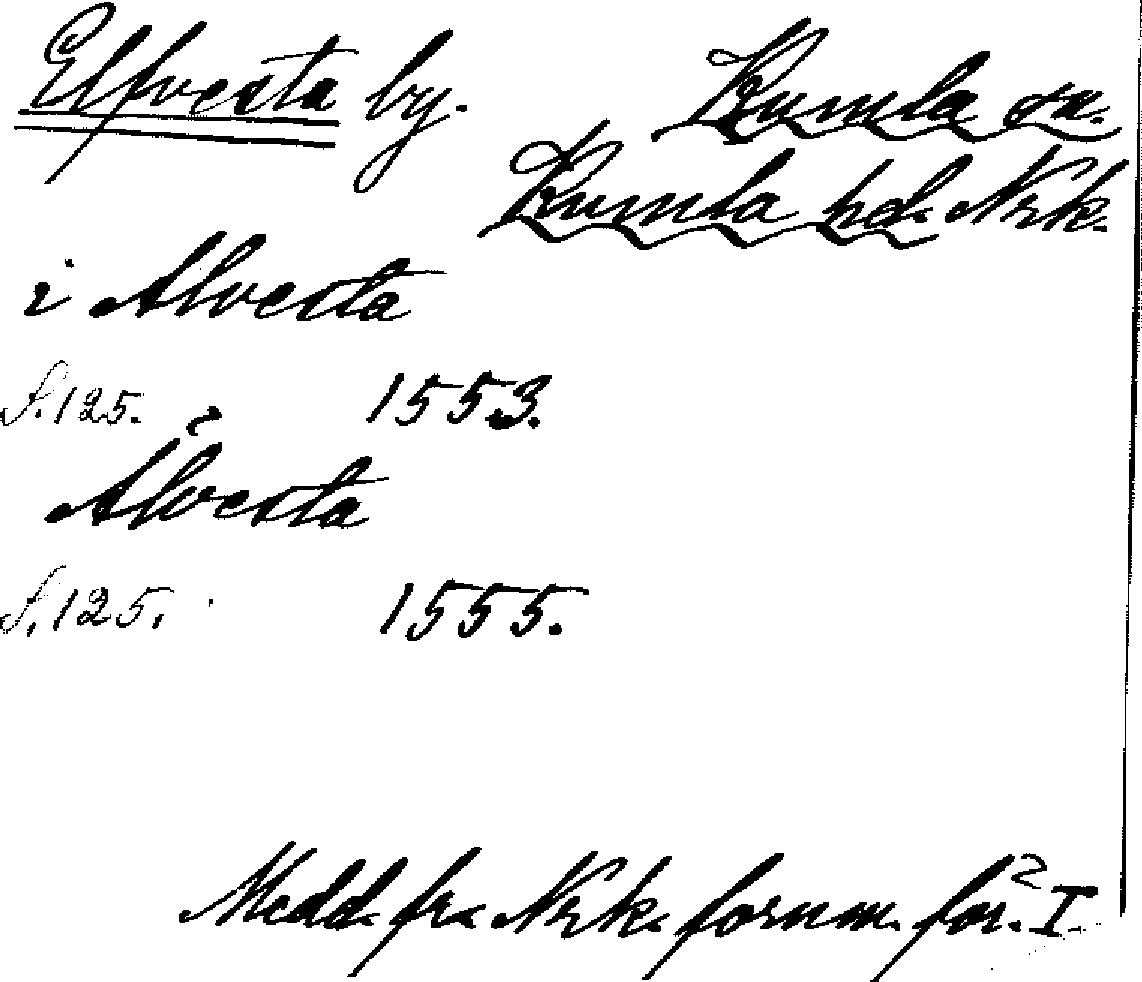 Elfvesta by.
Kumla sn.
Kumla hd. Nrk.
i Alvesta
S. 125. 1553.
Ålvesta
S. 125. 1555.
Medd. fr. Nrk. fornm. för. I.